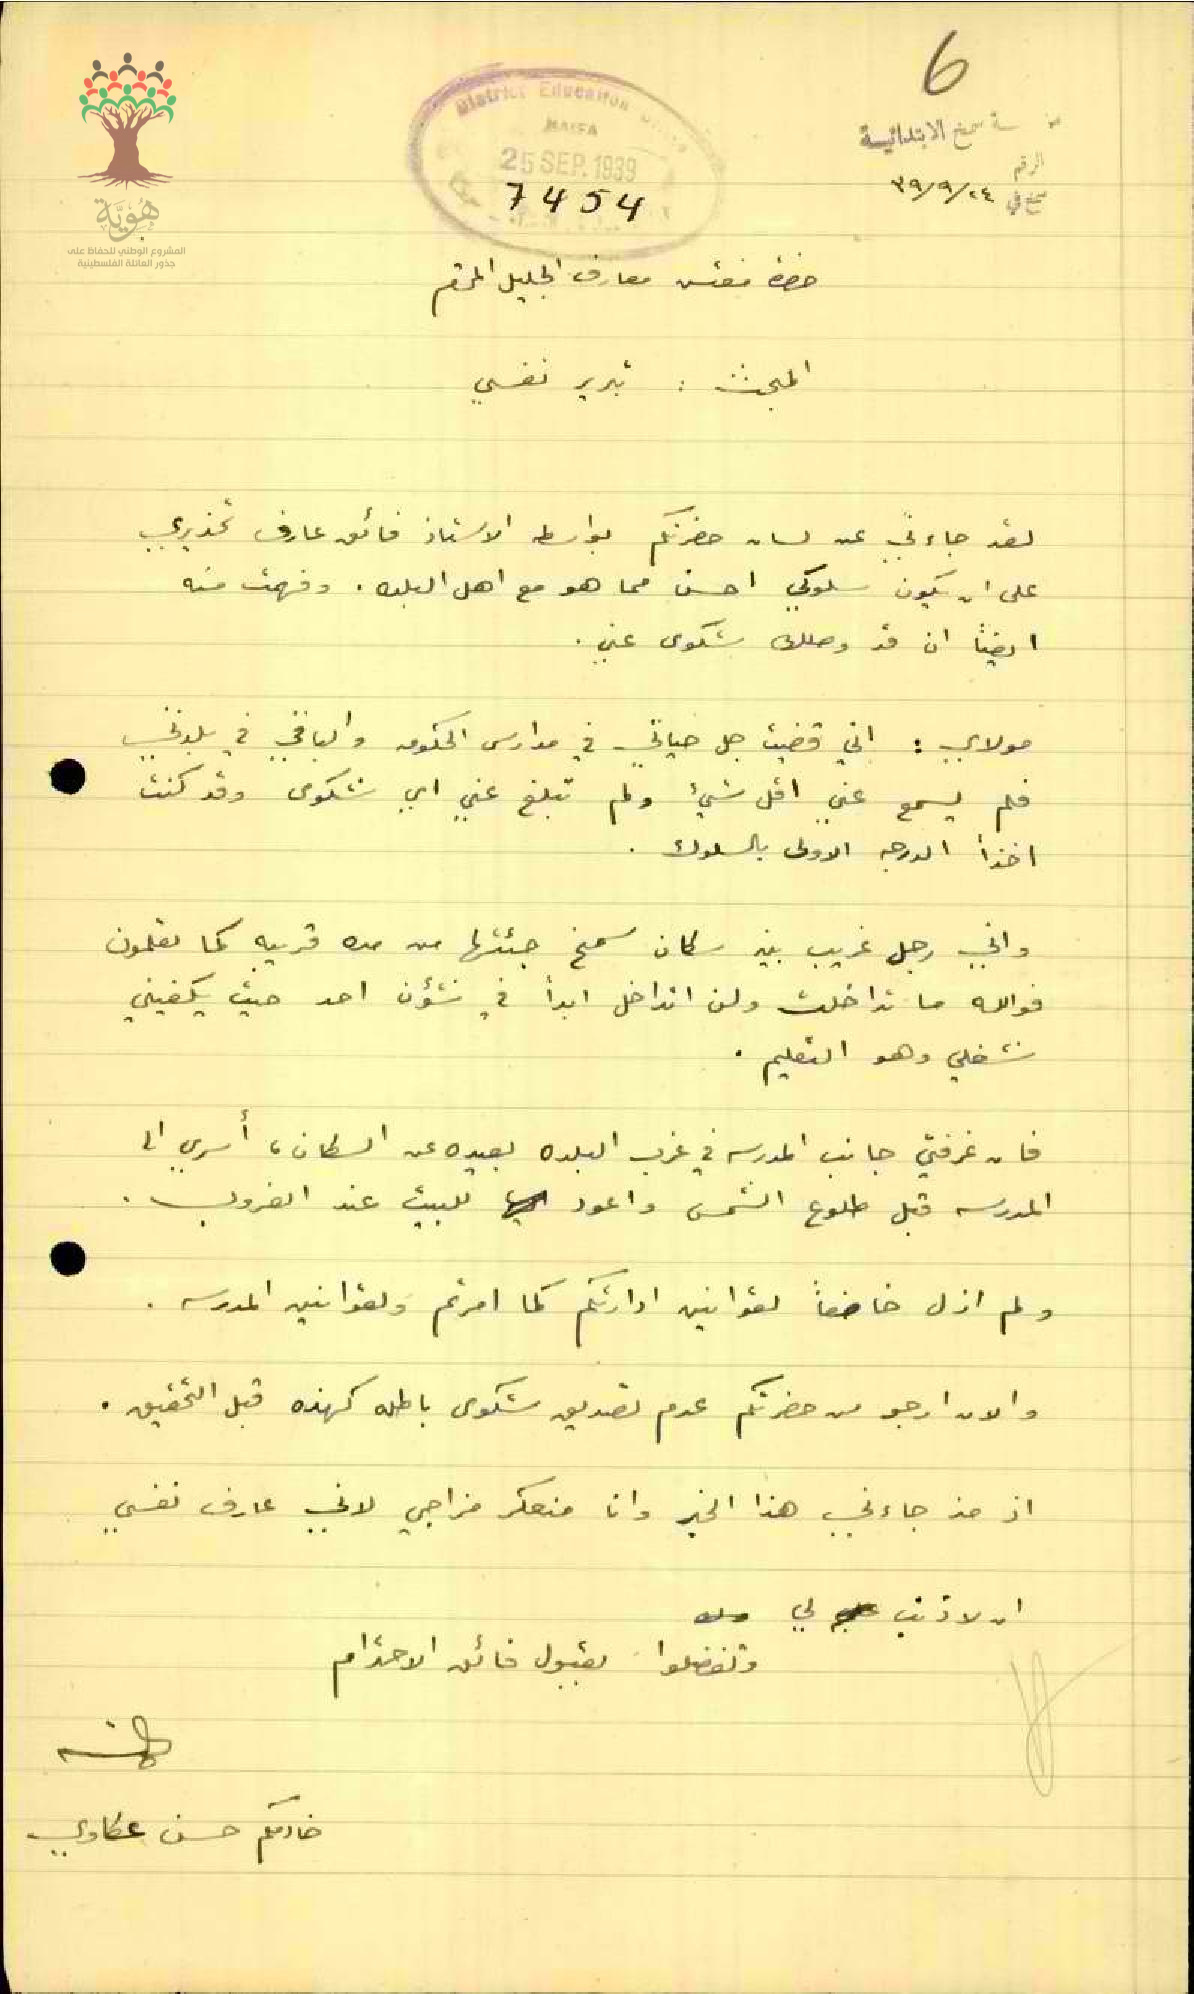 6
District Education
HAIFA
25 SEP. 1939
7454
سمخ الابتدائية
الرقم
٣٩/٩/٢٤
هُويَّة
المشروع الوطني للحفاظ على
جذور العائلة الفلسطينية
حضرة مفتش معارف الجليل المحترم
المبحث : تبرير نفسي
لقد جاءني عن لسان حضرتكم بواسطه الاستاذ فائق عارف تحذيري
على ان يكون سلوكي احسن مما هو مع اهل البلده . وفهمت منه
ايضاً ان قد وصلك شكوى عني .
مولاي : اني قضيت جل حياتي في مدارس الحكومه والباقي في بلدتي
فلم يسمع عني اقل شيئ ولم تبلغ عني اي شكوى وقد كنت
اخذاً الدرجه الاولى بالسلوك .
واني رجل غريب بين سكان سمخ جئتها من مده قريبه كما تعلمون
فوالله ما تداخلت ولن اتداخل ابداً في شؤن احد حيث يكفيني
شغلي وهو التعليم .
فان غرفتي جانب المدرسه في غرب البلده بعيده عن السكان ، أسري الى
المدرسه قبل طلوع الشمس واعود للبيت عند الغروب .
ولم ازل خاضعاً لقوانين ادارتكم كما امرتم ولقوانين المدرسه .
والان ارجو من حضرتكم عدم تصديق شكوى باطله كهذه قبل التحقيق .
اذ منذ جاءني هذا الخبر وانا منعكر مزاجي لاني عارف نفسي
ان لا ذنب لي
وتفضلوا بقبول فائق الاحترام
خادمكم حسن عكاوي